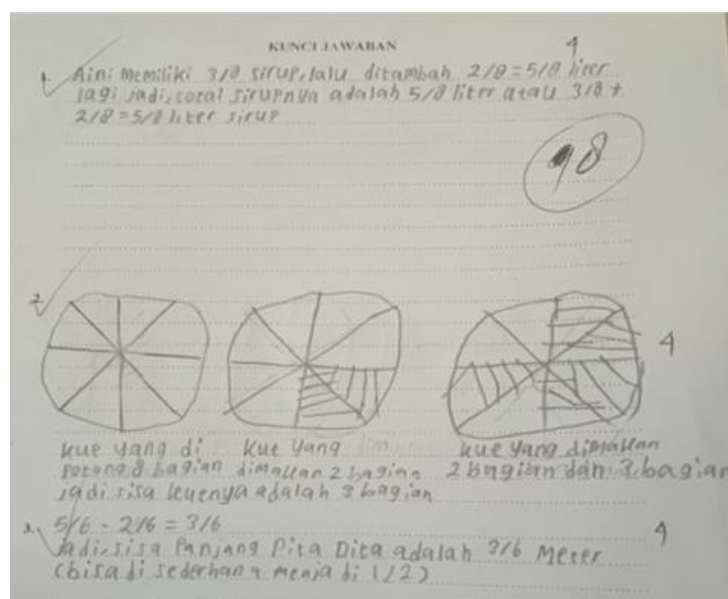 KUNCI JAWABAN
4
1. Aini memiliki 3/8 sirup, lalu ditambah 2/8 = 5/8 liter
lagi jadi, total sirupnya adalah 5/8 liter atau 3/8 +
2/8 = 5/8 liter sirup
98
2.
4
kue yang di kue yang kue yang dimakan
potong 8 bagian dimakan 2 bagian 2 bagian dan 3 bagian
jadi sisa kuenya adalah 3 bagian
3. 5/6 - 2/6 = 3/6
4
Jadi, sisa Panjang Pita Dita adalah 3/6 Meter
(bisa di sederhana menjadi 1/2)